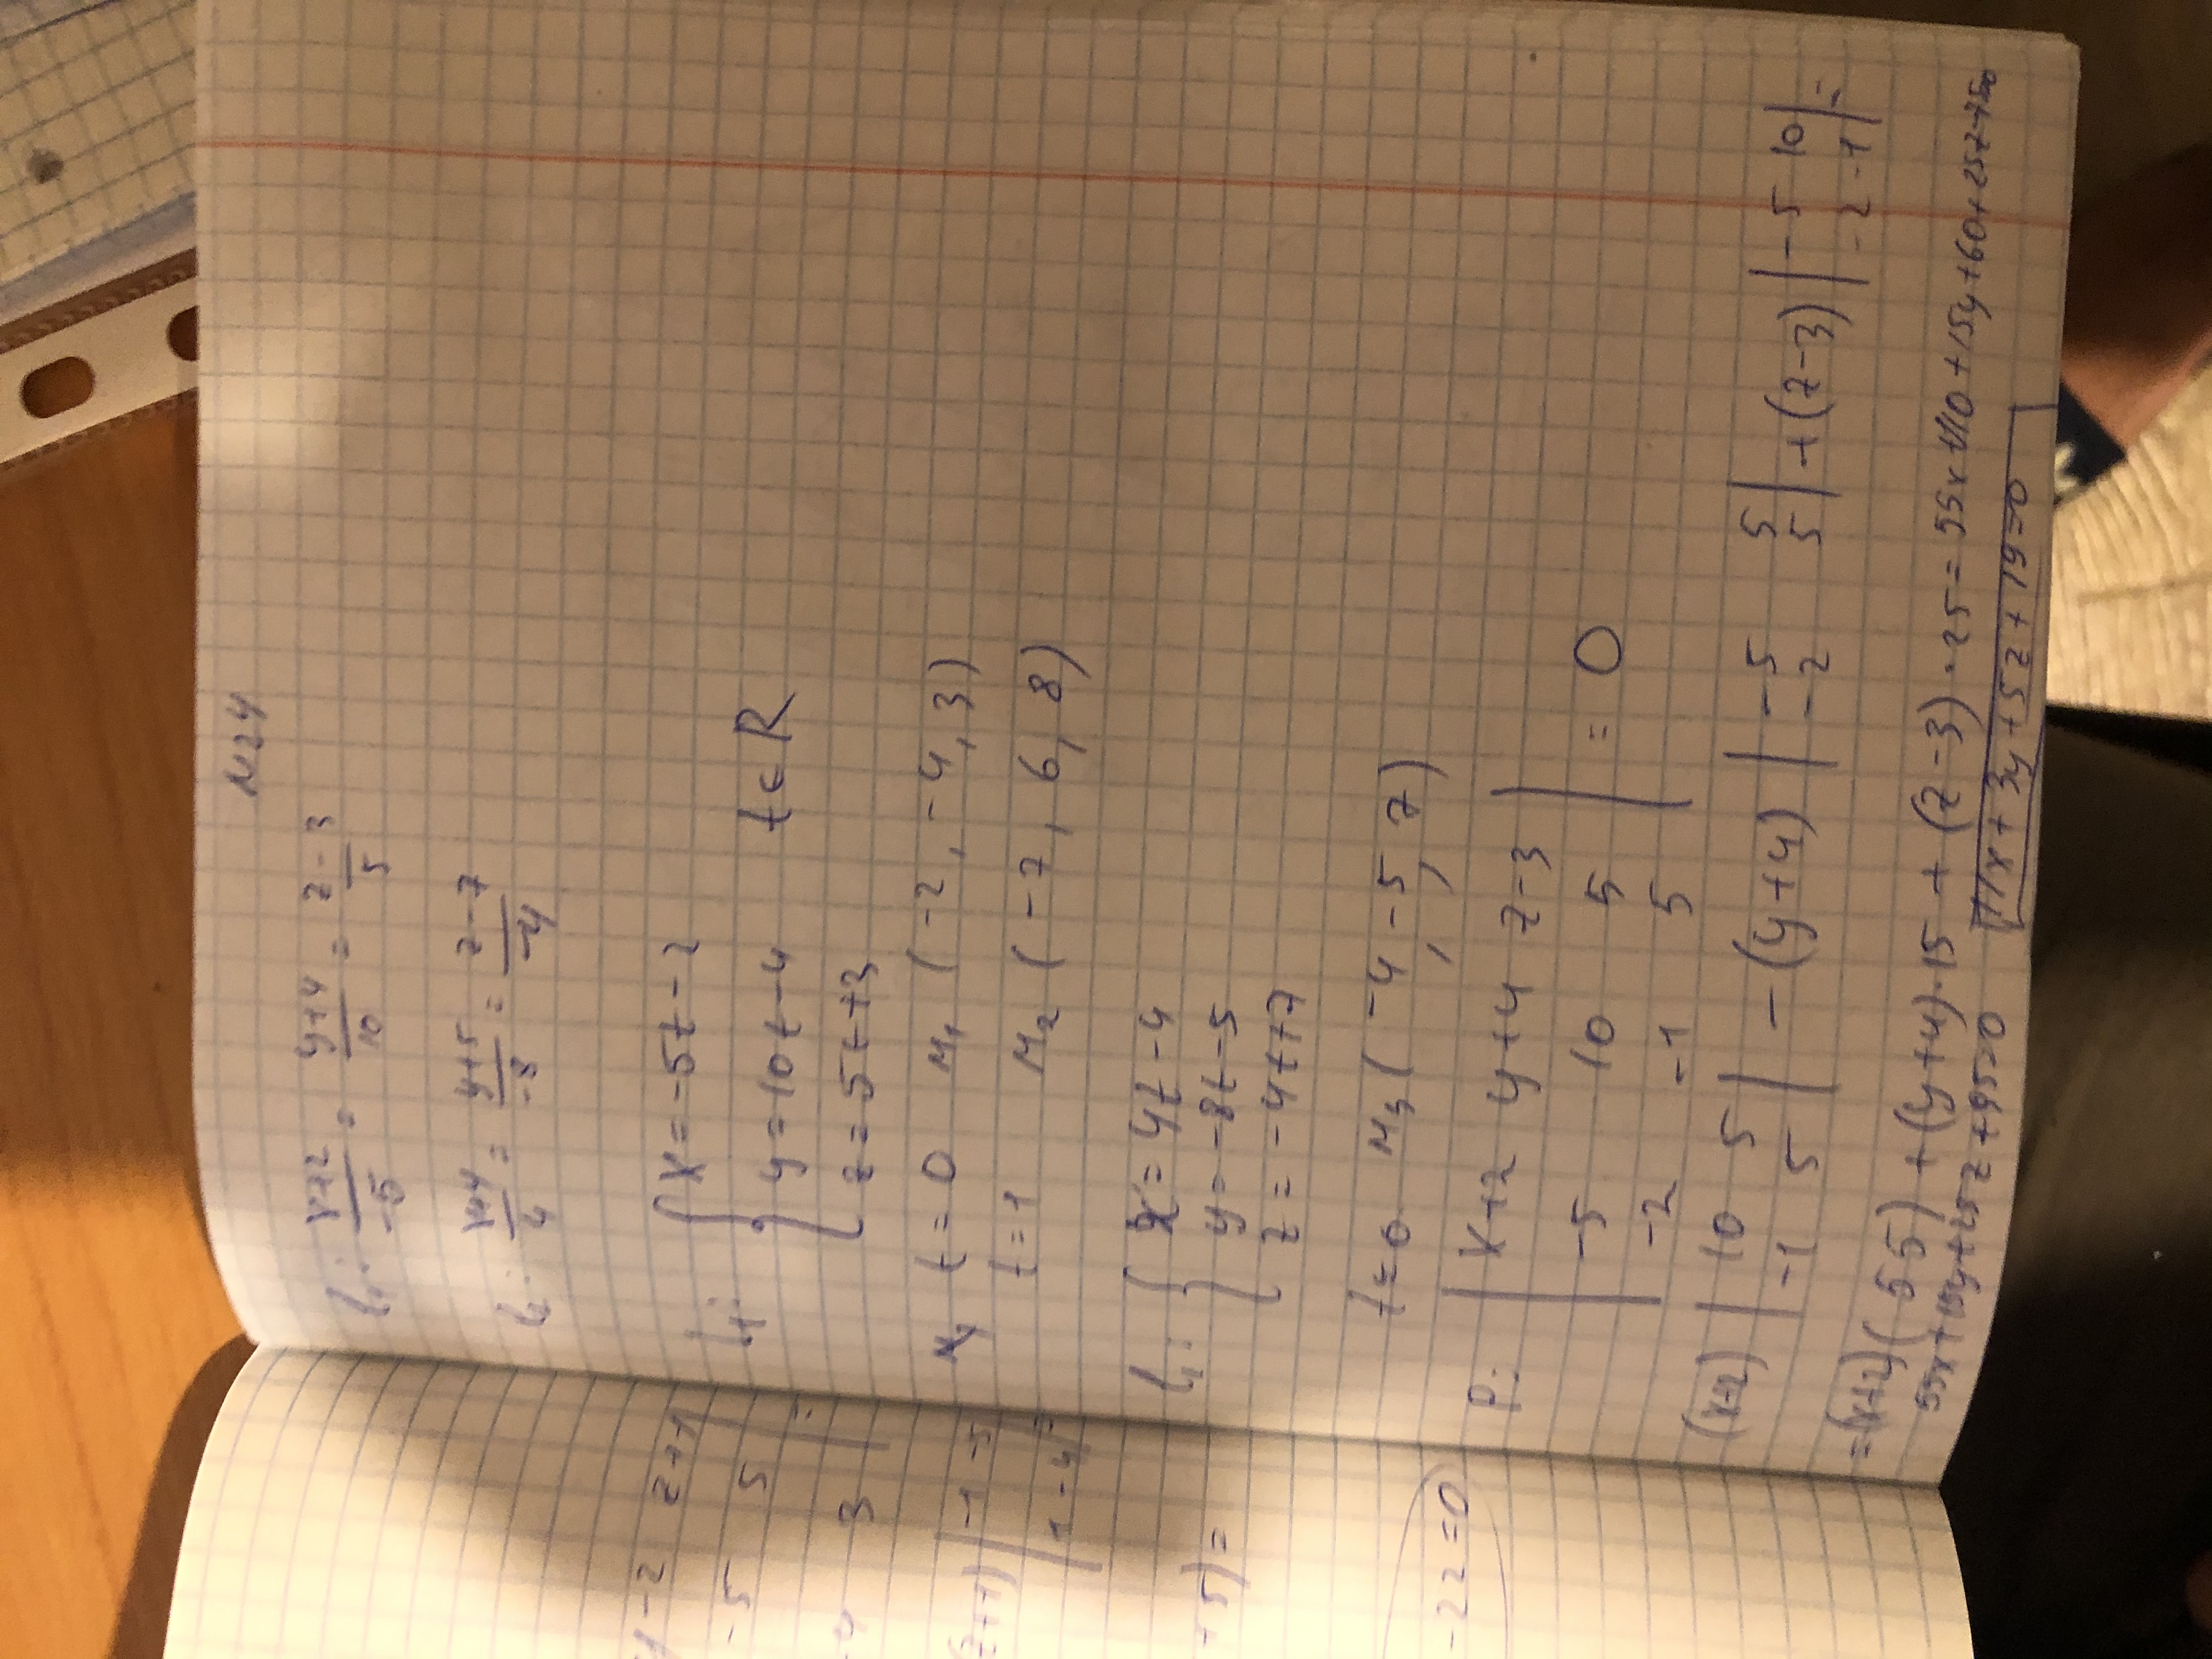 N24
l₁: x+2/-5 = y+4/10 = z-3/5
l₂: x+4/4 = y+5/-8 = z-7/-4
l₁: { x = -5t-2
y = 10t-4 t∈R
z = 5t+3
t=0 M₁ (-2, -4, 3)
t=1 M₂ (-7, 6, 8)
{ x = 4t-4
y = -8t-5
z = -4t+7
t=0 M₃ (-4, -5, 7)
P: | x+2 y+4 z-3 |
| -5 10 5 | = 0
| -2 -1 5 |
(x+2) | 10 5 | - (y+4) | -5 5 | + (z-3) | -5 10 | =
| -1 5 | | -2 5 | | -2 -1 |
= (x+2)(55) + (y+4)·15 + (z-3)·25 = 55x+110+15y+60+25z-75=0
55x+15y+25z+95=0
11x+3y+5z+19=0
y-2 z+1
-5 5
-4 3 | =
(z+1) | -1 -5 |
| 1 -4 | =
+5) =
-22=0